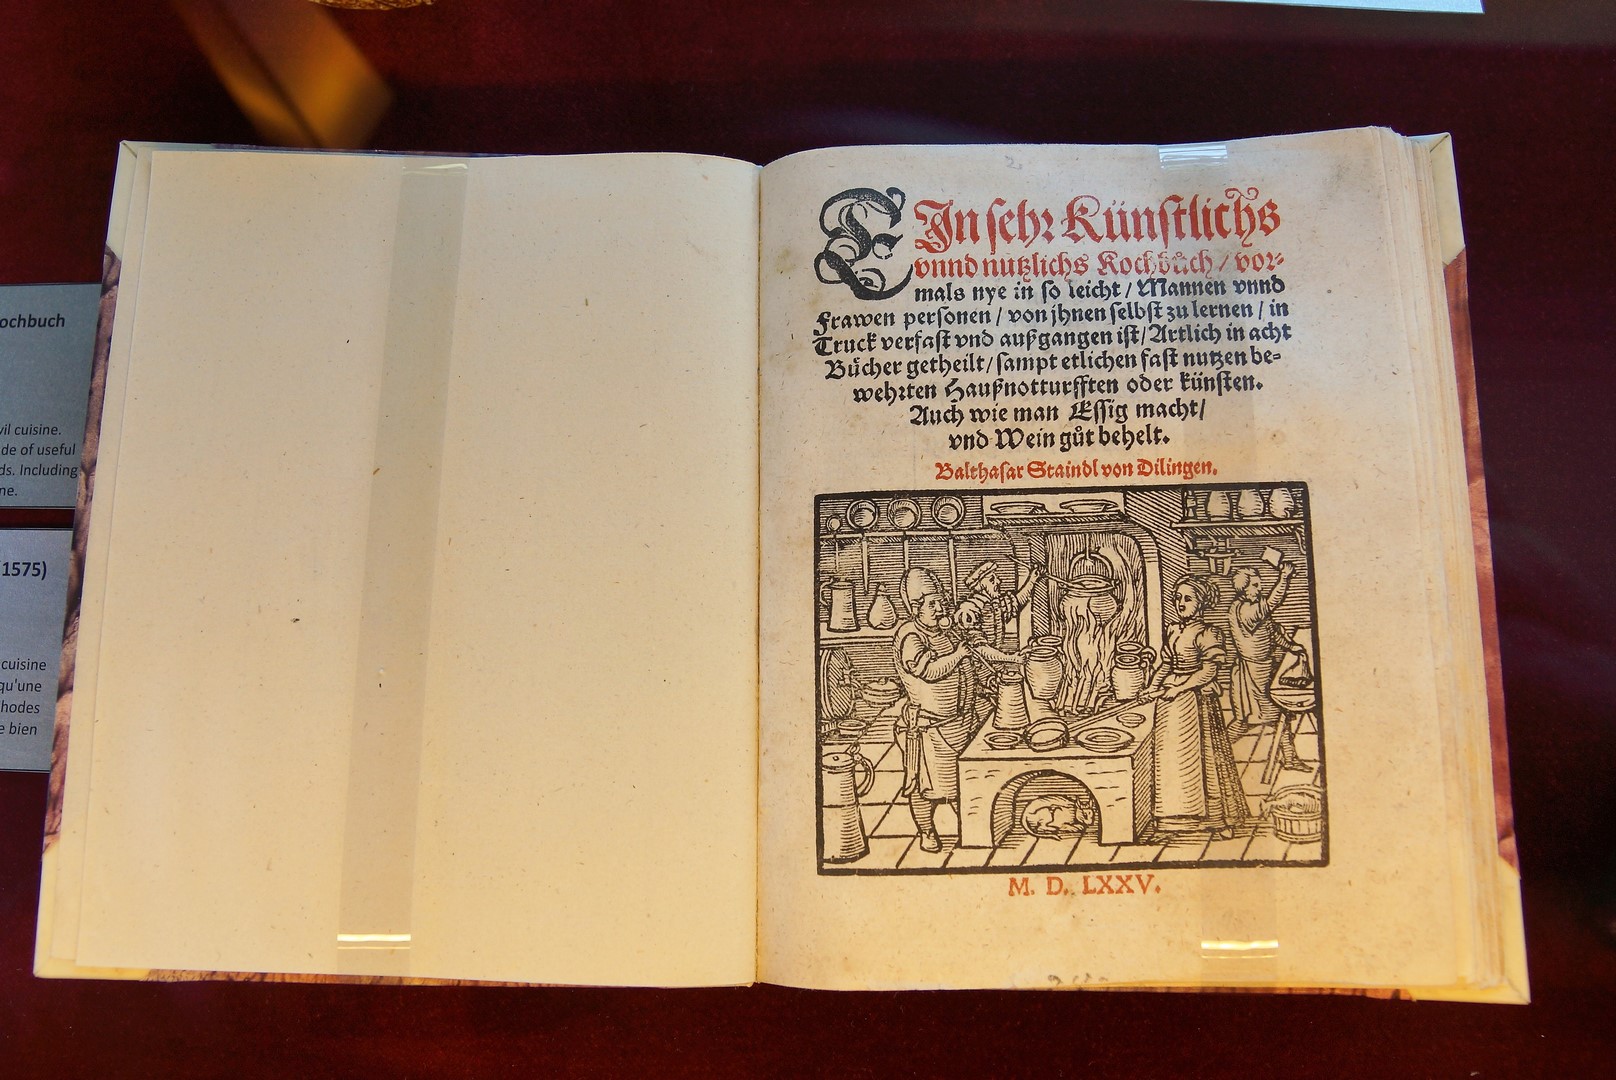 ochbuch
vil cuisine.
de of useful
ds. Including
ne.
1575)
cuisine
qu'une
hodes
e bien
EIn sehr Künstlichs
vnnd nutzlichs Kochbůch / vor-
mals nye in so leicht / Mannen vnnd
Frawen personen / von jhnen selbst zu lernen / in
Truck verfast vnd außgangen ist / Artlich in acht
Bücher getheilt / sampt etlichen fast nutzen be-
wehrten Haußnotturfften oder künsten.
Auch wie man Essig macht /
vnd Wein gůt behelt.
Balthasar Staindl von Dilingen.
M. D. LXXV.